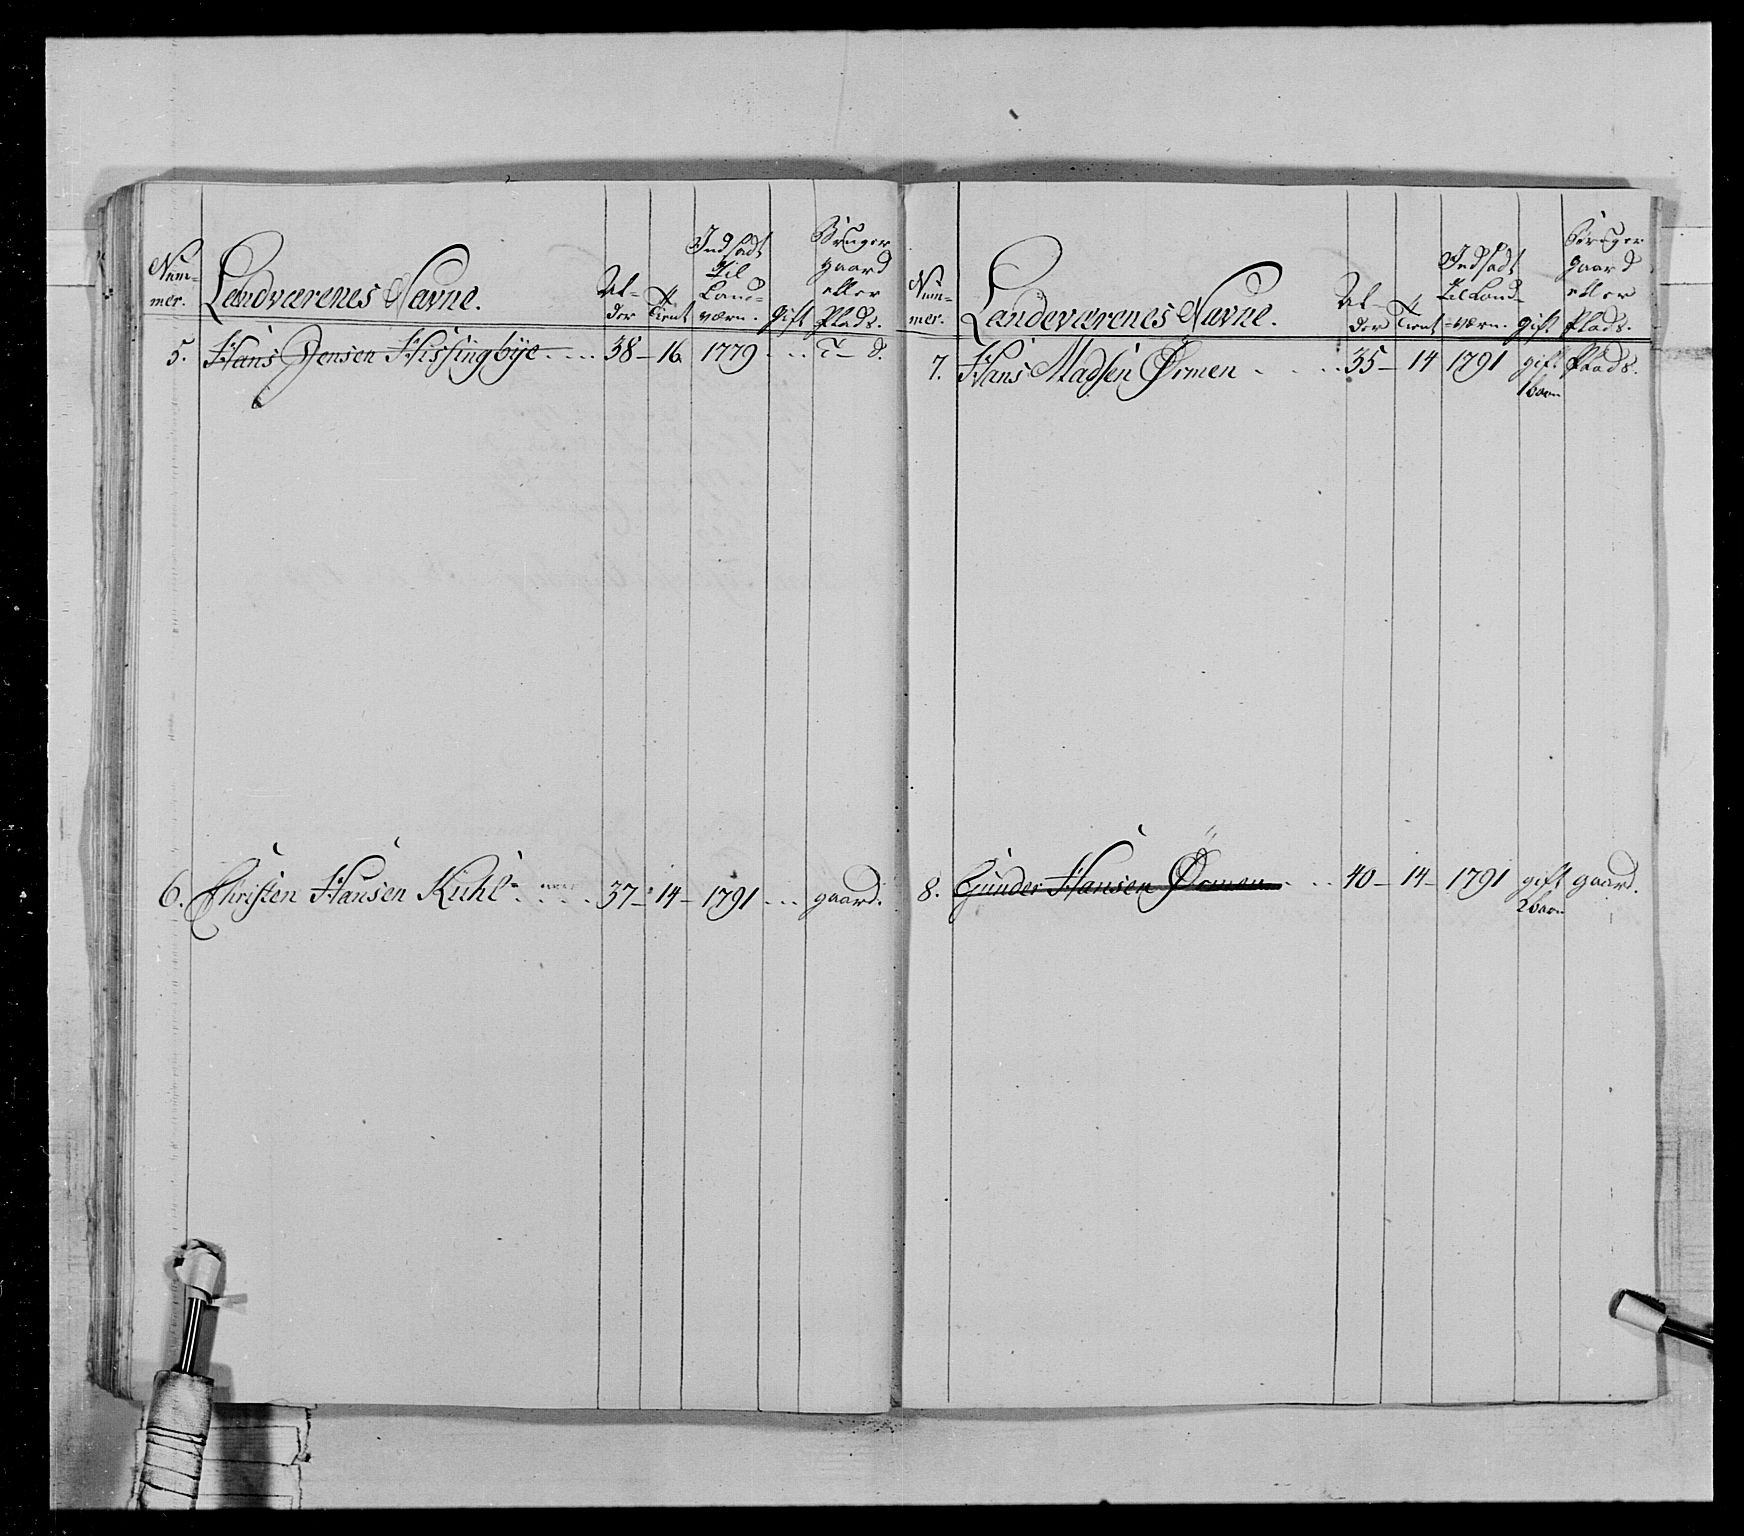 Num-
mer.
Landværenes Navne.
Al-
der
Tient
Indsadt
til
Land-
værn.
gift
Bruger
gaard
eller
Plads.
5. Hans Jensen Hissingbÿe .... 38 – 16. 1779 ...
6. Christen Hansen Kiihl ..... 37 – 14 – 1791 ... gaard.
Num-
mer.
Landeværenes Navne.
Al-
der
Tient
Indsadt
til Land-
værn.
gift
Bruger
gaard
eller
Plads.
7. Hans Madsen Ørmen .... 35 – 14 1791 gift Plads.
1 barn
8. Gunder Hansen Ørmen ... 40 – 14 – 1791 gift gaard.
2 barn